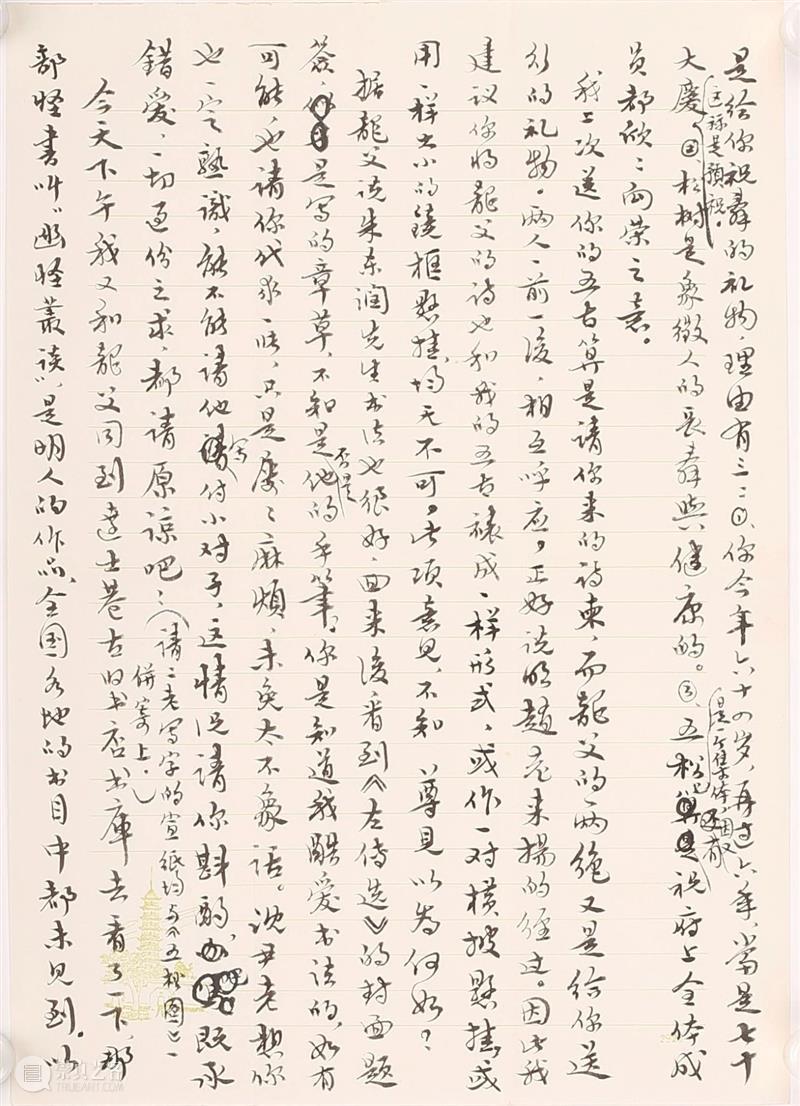 是给你祝寿的礼物，理由有三：㊀、你今年六十四岁，再过六年，当是七十
大庆（这称是预祝。㊁松树是象徵人的长寿与健康的。㊂、五松（是一个集体，因又还有祝府上全体成
员都欣欣向荣之意。
我上次送你的五古算是请你来的诗柬，而龍父的两绝又是给你送
行的礼物。两人一前一後，相互呼应，正好说明赵老来扬的经过。因此我
建议你将龍父的诗也和我的五古裱成一样形式，或作一对横披悬挂，或
用一样大小的镜框悬挂，均无不可。此项意见，不知 尊见以为何如？
据龍父说朱东润先生书法也很好，回来後看到《左传选》的封面题
签是写的章草，不知是否是他的手笔，你是知道我酷爱书法的，如有
可能，也请你代求一张，只是屡屡麻烦，未免太不象话。沈尹老想你
也一定熟识，能不能请他写付小对子，这情况请你斟酌办吧。既承
错爱，一切过份之求，都请原谅吧！（请二老写字的宣纸均与《五松图》一
併寄上。）
今天下午我又和龍父同到达士巷古旧书店书库去看了一下，那
部怪书叫《幽怪叢谈》，是明人的作品，全国各地的书目中都未见到。以
崇真艺客
TRUEART.COM